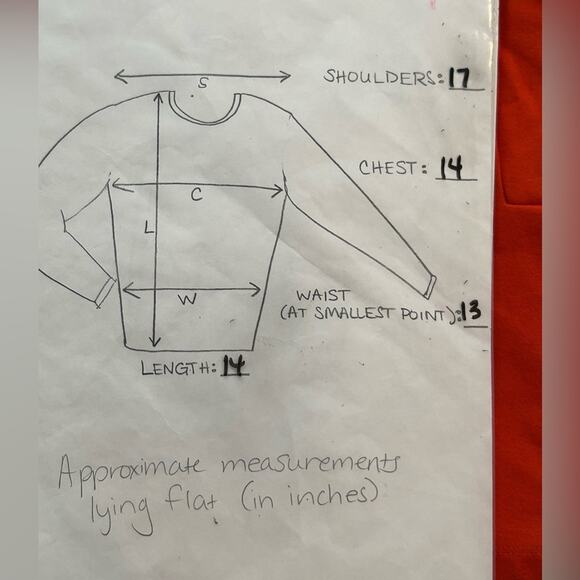 S
SHOULDERS: 17
CHEST: 14
C
L
W
WAIST
(AT SMALLEST POINT): 13
LENGTH: 14
Approximate measurements
lying flat (in inches)